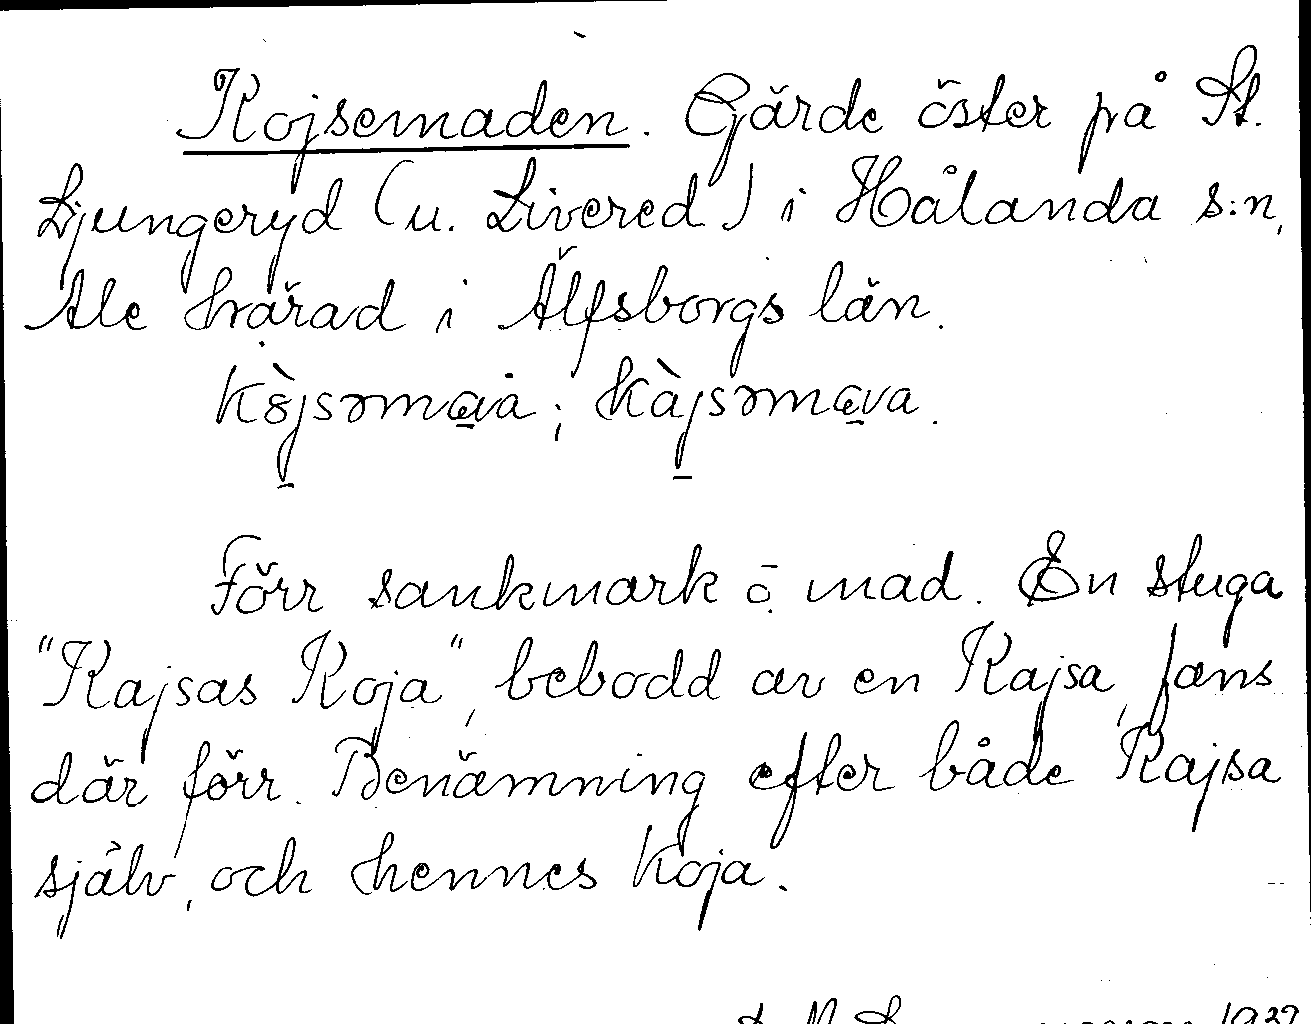 Kojsemaden. Gärde öster på St.
Ljungeryd (u. Livered) i Hålanda s:n,
Ale härad i Älfsborgs län.
kòjsəmava; kàjsəmava.
Förr sankmark o. mad. En stuga
"Kajsas Koja", bebodd av en Kajsa, fans
där förr. Benämning efter både Kajsa
själv, och hennes koja.
1932